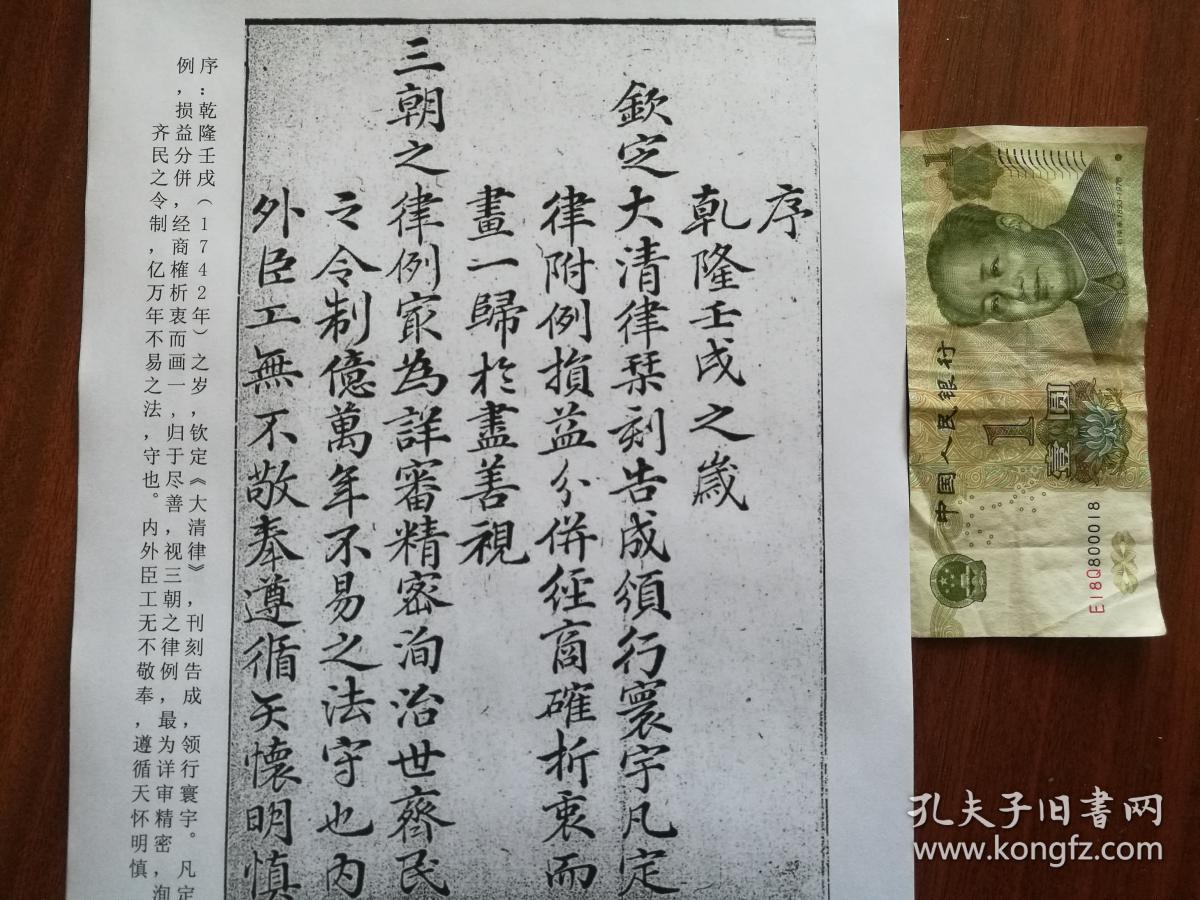 序
乾隆壬戌之歲
欽定大清律栞刻告成頒行寰宇凡定
律附例損益分併經商確折衷而
畫一歸於盡善視
三朝之律例㝡為詳審精密洵治世齊民
之令制億萬年不易之法守也内
外臣工無不敬奉遵循矢懷明慎
序：乾隆壬戌（1742年）之岁，钦定《大清律》，刊刻告成，领行寰宇。凡定
例，损益分併，经商榷析衷而画一，归于尽善，视三朝之律例，最为详审精密，洵
齐民之令制，亿万年不易之法，守也。内外臣工无不敬奉，遵循天怀明慎，
1
中国人民银行
1
壹圆
E18Q800018
孔夫子旧書网
www.kongfz.com